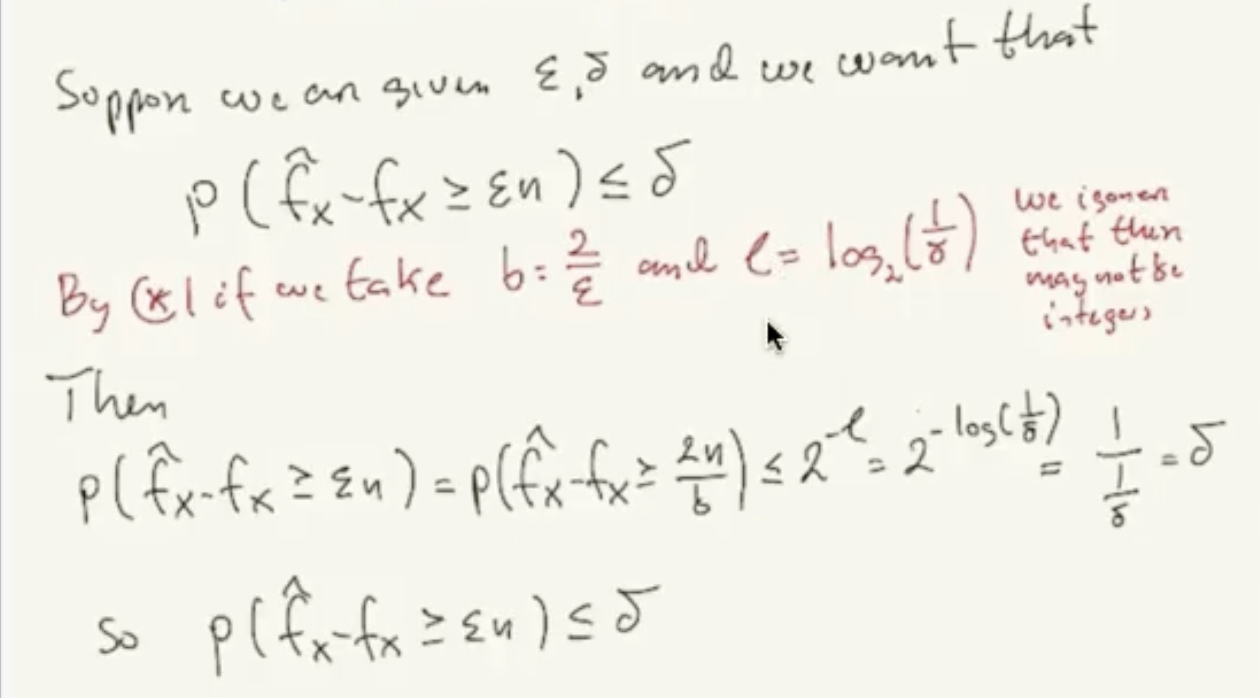 Suppose we are given ε,δ and we want that
P(f̂ₓ-fₓ ≥ εn) ≤ δ
By (*) if we take b = 2/ε and l = log₂(1/δ)
we ignore
that there
may not be
integers
Then
P(f̂ₓ-fₓ ≥ εn) = P(f̂ₓ-fₓ ≥ 2n/b) ≤ 2^-l = 2^-log(1/δ) = 1/(1/δ) = δ
So P(f̂ₓ-fₓ ≥ εn) ≤ δ